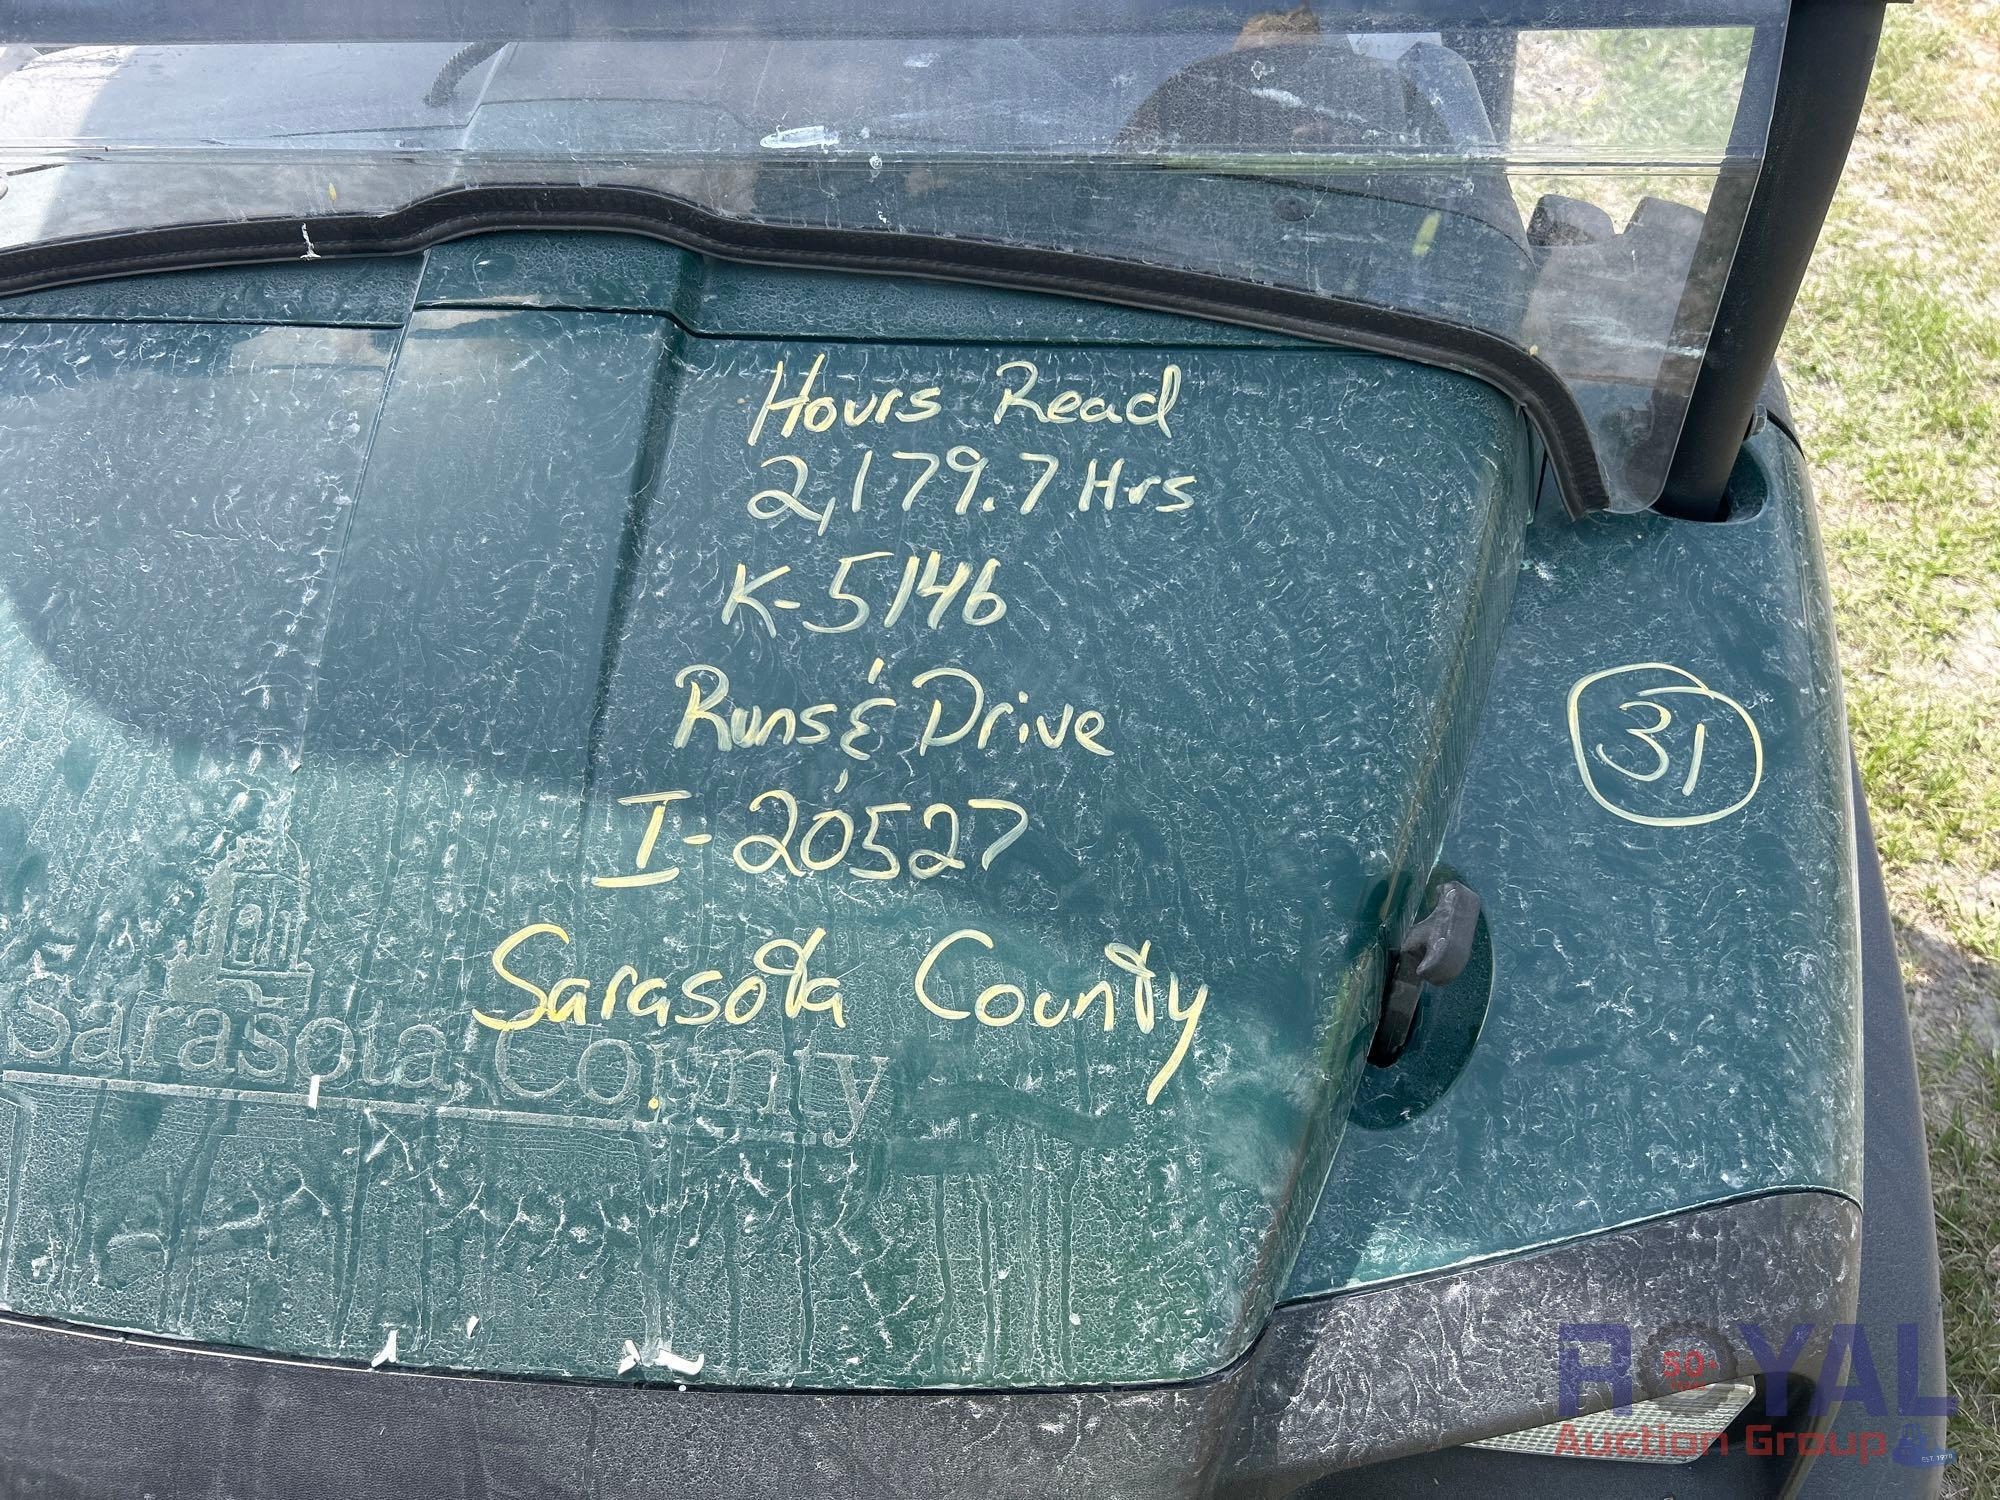 Hours Read
2,179.7 Hrs
K-5146
Runs & Drive
I-20527
Sarasota County
31
Sarasota County
ROYAL
50+
Auction Group
EST. 1970